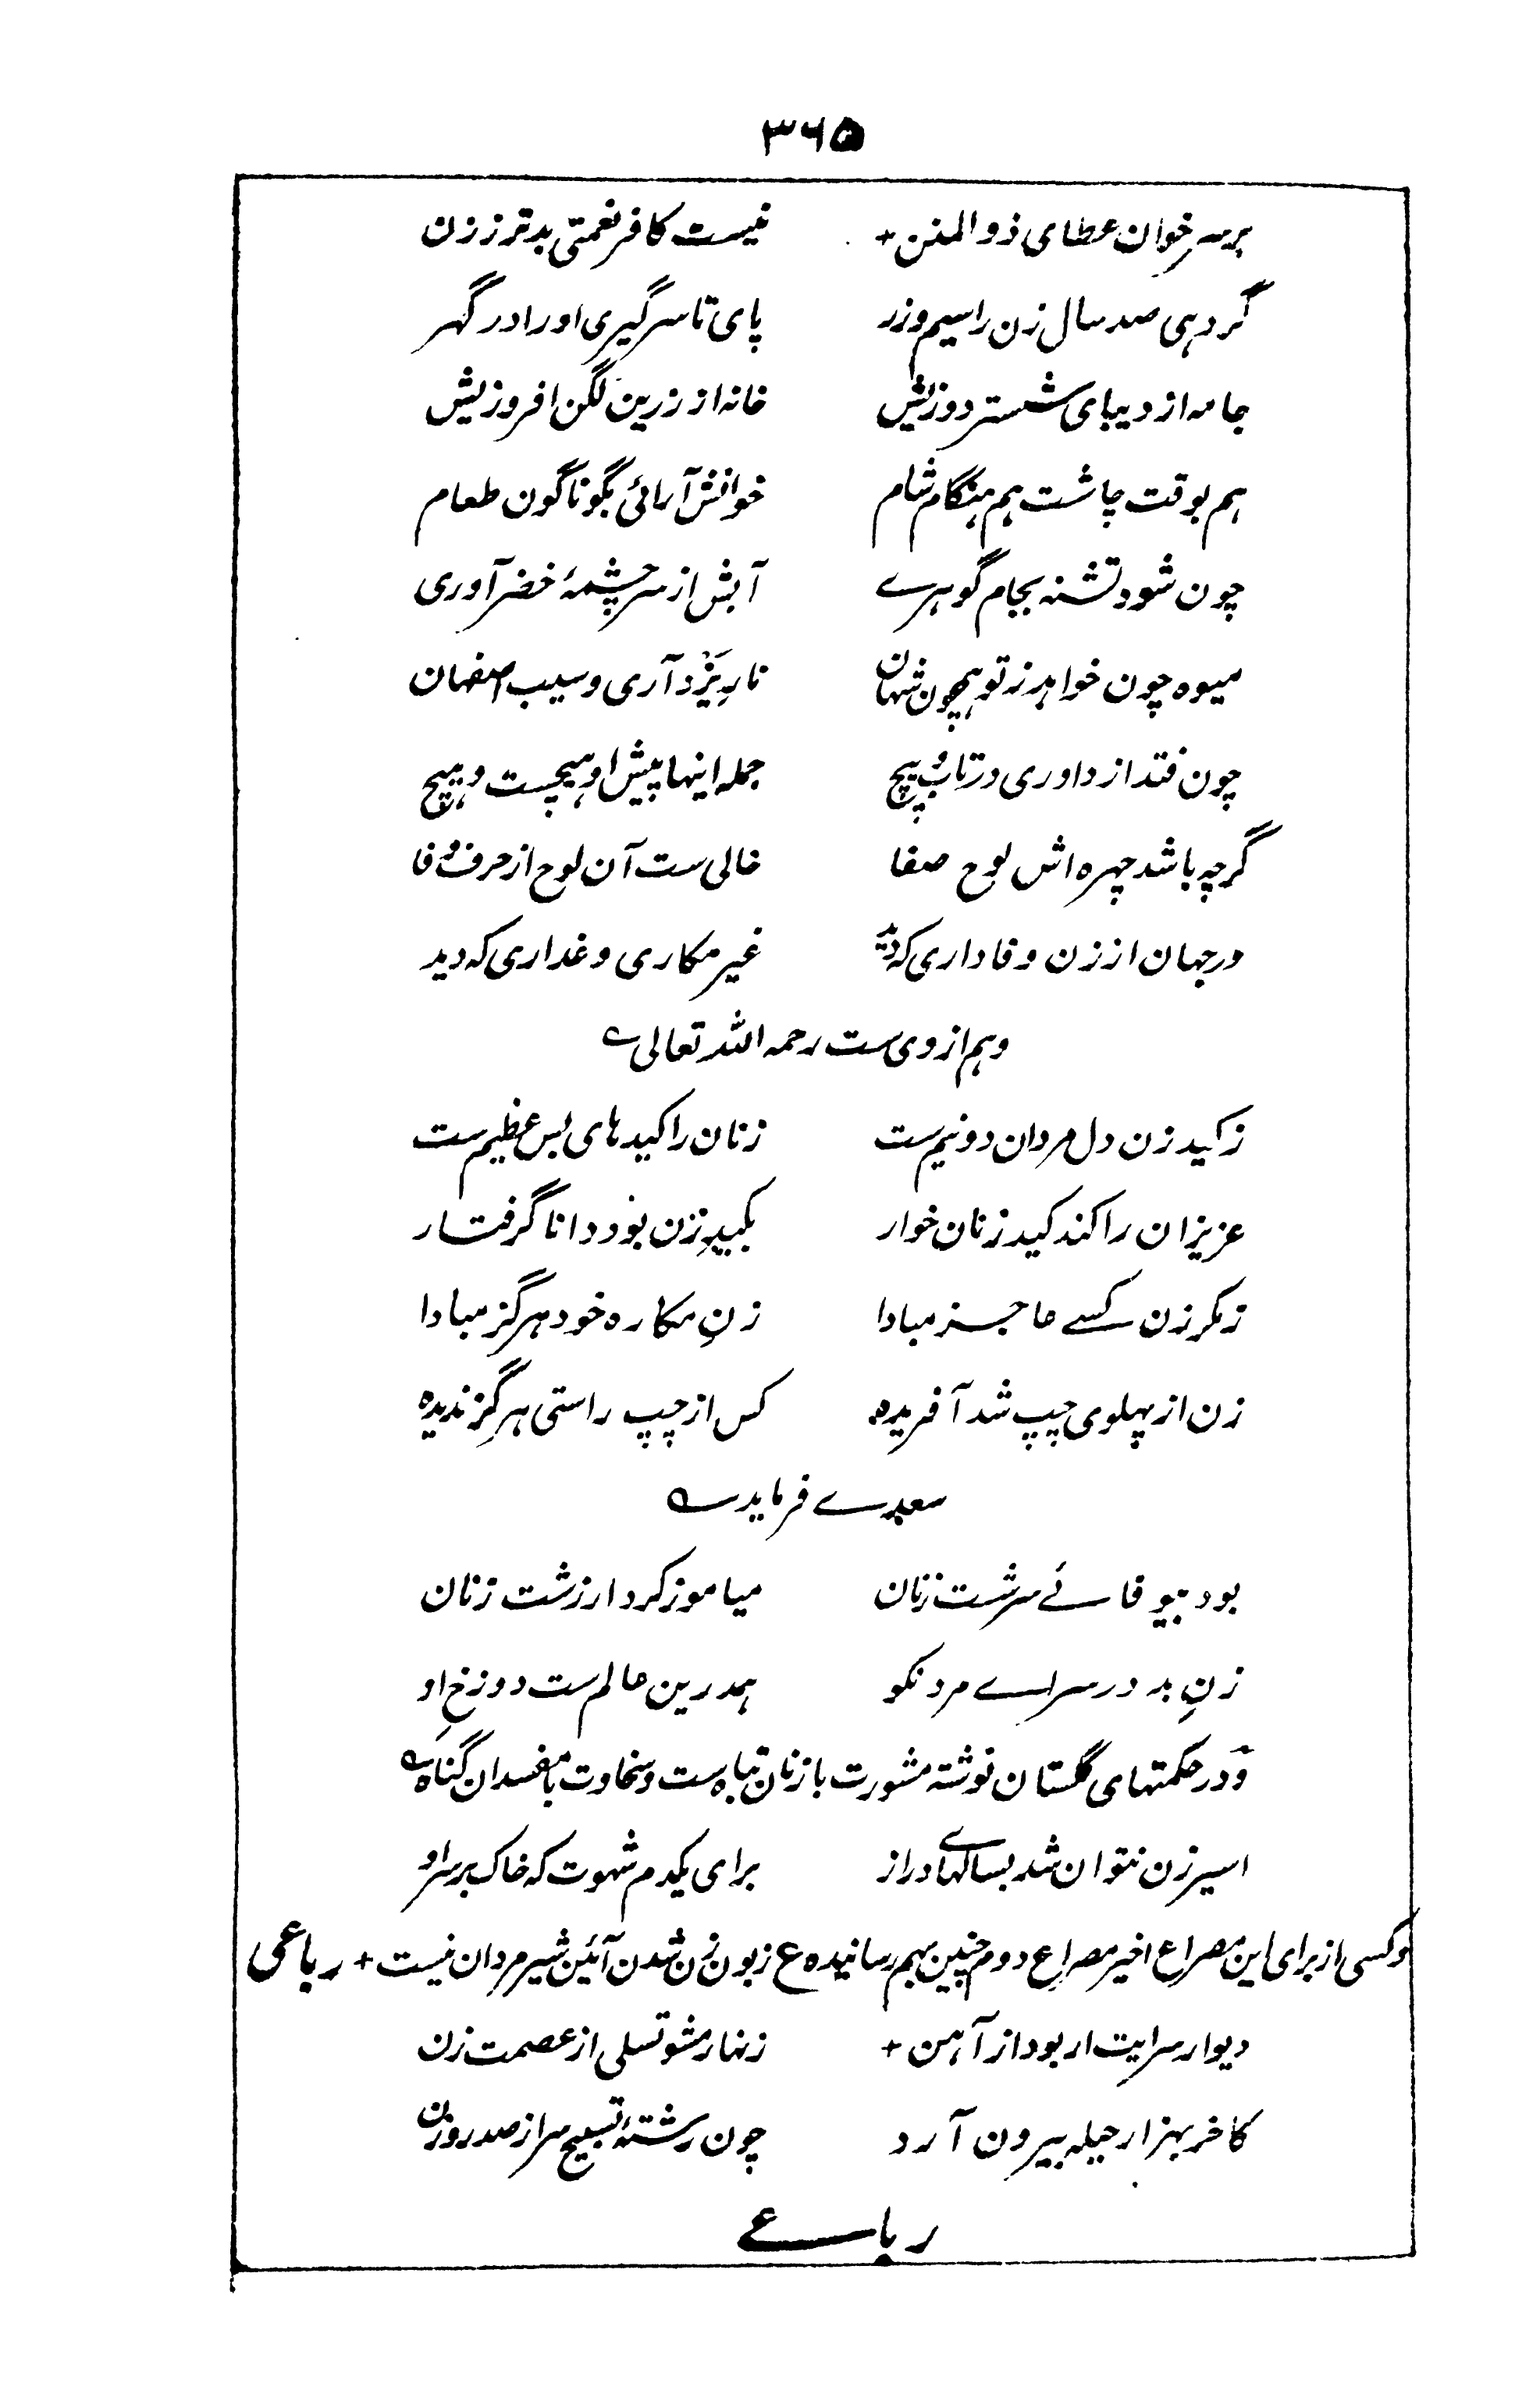 ۳۶۵
بر سر خوان عطای ذو المنن + نیست کافر نعمتی بدتر ز زن
گر دہی صد سال زن را سیم و زر پای تا سر گیری او را در گہر
جامہ از دیبای شستر دوزیش خانہ از زرین لگن افروزیش
ہم بوقت چاشت ہم ہنگام شام خوانش آرائی بگوناگون طعام
چون شود تشنہ بجام گوہرے آبش از سرچشمۂ خضر آوری
میوہ چون خواہد ز تو ہمچون شہان نارِ یَزْد آری و سیب اصفہان
چون فتد از داوری در تاب و پیچ جملہ اینہا پیش او ہیچست و ہیچ
گرچہ باشد چہرہ اش لوح صفا خالی ست آن لوح از حرف وفا
در جہان از زن وفاداری کہ دید غیر مکاری و غداری کہ دید
و ہم از وی ست رحمہ اللہ تعالی ے
ز کید زن دل مردان دو نیم ست زنان را کیدہای بس عظیم ست
عزیزان را کند کید زنان خوار بکیدِ زن بود دانا گرفتار
ز مکر زن کسے عاجز مبادا زنِ مکارہ خود ہرگز مبادا
زن از پہلوی چپ شد آفریدہ کس از چپ راستی ہرگز ندیدہ
سعدے فرماید ے
بود بیوفائے سرشت زنان میاموز کردار زشت زنان
زنِ بد در سراے مرد نکو ہمدرین عالم ست دوزخِ او
و در حکمتہای گلستان نوشتہ مشورت با زنان تباہ ست و سخاوت با مفسدان گناہ ے
اسیر زن نتوان شد بسالہاے دراز برای یکدم شہوت کہ خاک بر سر او
و کسی از برای این مصراع اخیر مصراع دوم چنین بہم رسانیدہ ع زبون زن شدن آئین شیر مردان نیست + رباعی
دیوار سرایت ار بود از آہن + زنہار مشو تسلی از عصمت زن
کاخر بہزار حیلہ بیرون آرد چون رشتۂ تسبیح سر از صد روزن
رباعے